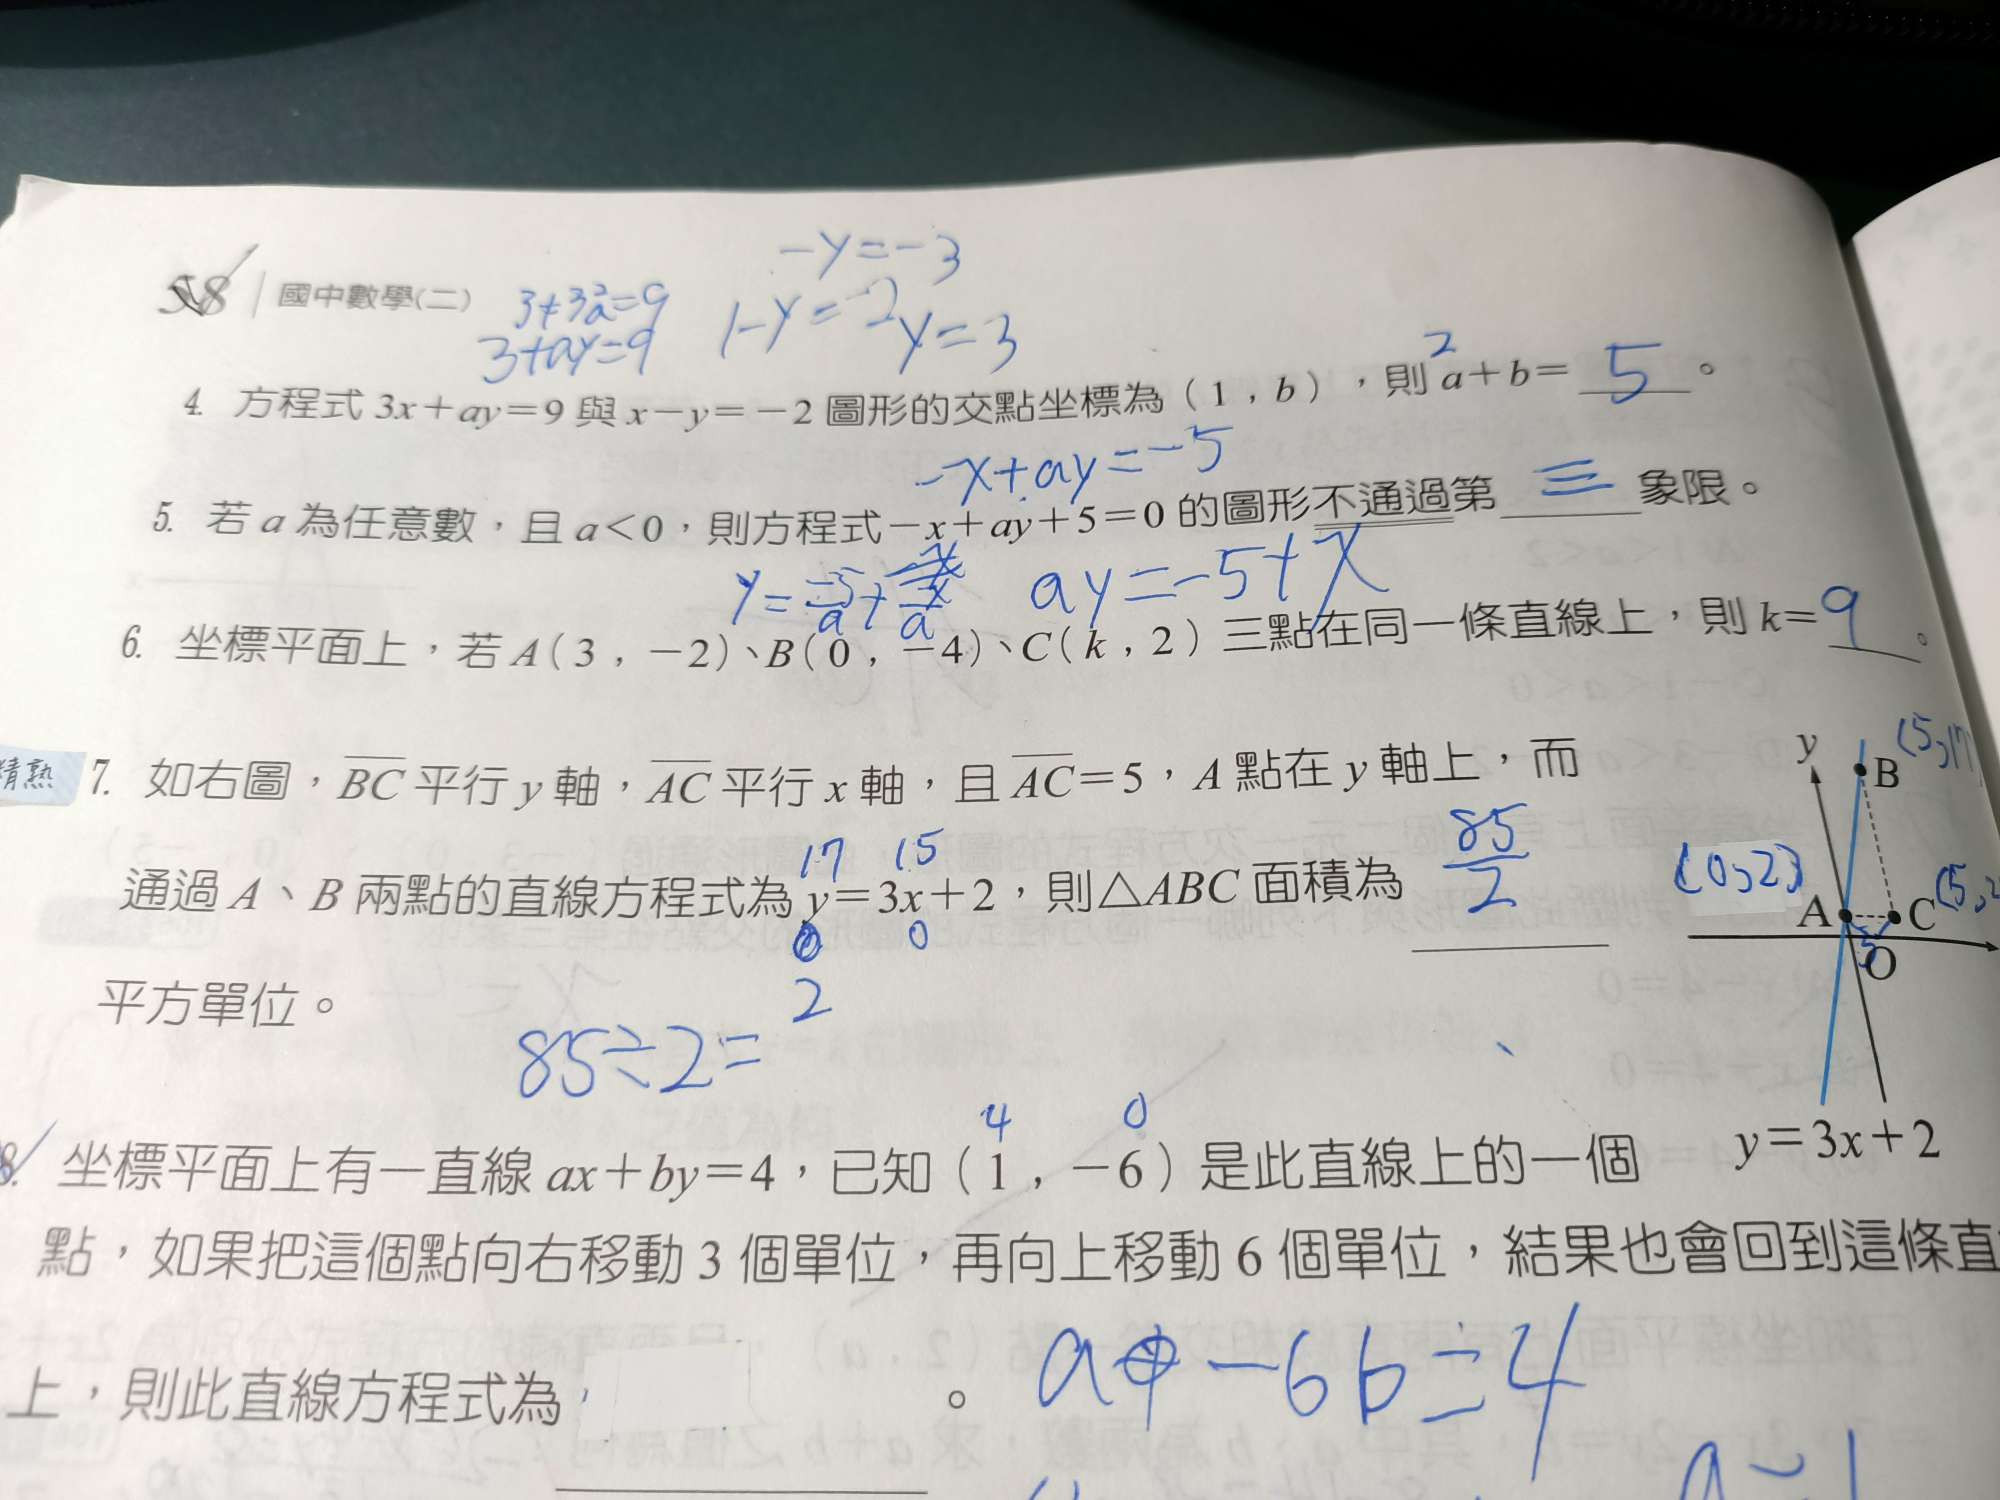 -y=-3
58 國中數學(二) 3+3a=9 1-y=-2 y=3
3+ay=9
2
4. 方程式 3x+ay=9 與 x-y=-2 圖形的交點坐標為（1，b），則 a+b= 5 。
-x+ay=-5
5. 若 a 為任意數，且 a<0，則方程式 -x+ay+5=0 的圖形不通過第 三 象限。
y=-5/a+x/a ay=-5+x
6. 坐標平面上，若 A（3，-2）、B（0，-4）、C（k，2）三點在同一條直線上，則 k=9。
精熟 7. 如右圖，BC 平行 y 軸，AC 平行 x 軸，且 AC=5，A 點在 y 軸上，而
17 15
通過 A、B 兩點的直線方程式為 y=3x+2，則△ABC 面積為 85/2
0
2
平方單位。
85÷2=
y B (5,17)
(0,2) A C (5,2
5 O
y=3x+2
4 0
8. 坐標平面上有一直線 ax+by=4，已知（1，-6）是此直線上的一個
點，如果把這個點向右移動 3 個單位，再向上移動 6 個單位，結果也會回到這條直
上，則此直線方程式為 。
a -6b=4
a=1